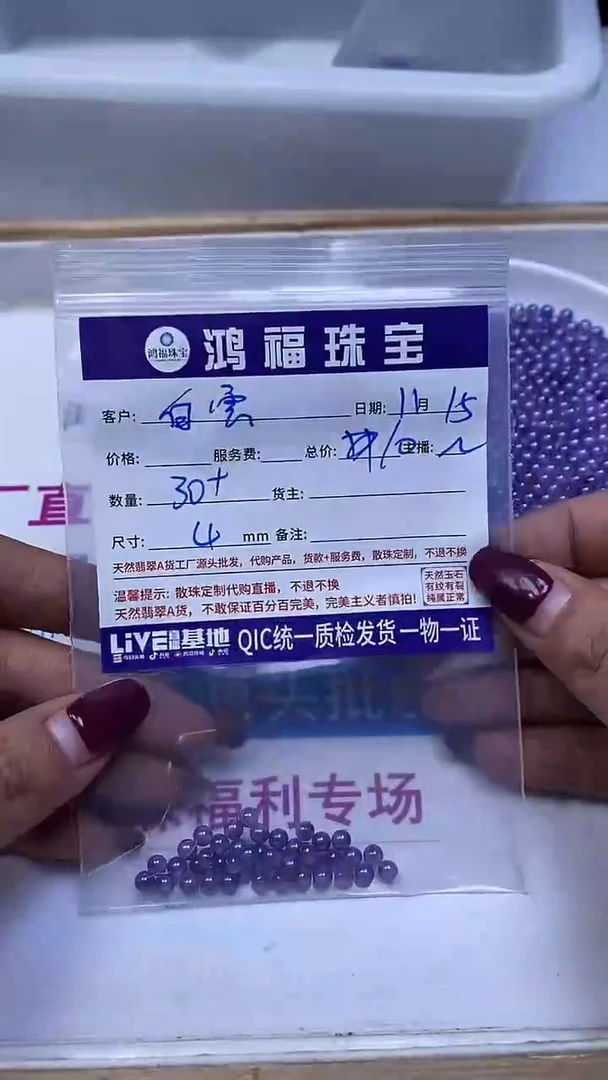 鸿福珠宝 鸿福珠宝
客户: 白雲 日期: 11月 15
价格: 服务费: 总价: 主播:
数量: 30+ 货主:
尺寸: 4 mm 备注:
天然翡翠A货工厂源头批发，代购产品，货款+服务费，散珠定制，不退不换
温馨提示: 散珠定制代购直播，不退不换
天然翡翠A货，不敢保证百分百完美，完美主义者慎拍!
天然玉石
有纹有裂
纯属正常
LIVE 基地 QIC统一质检发货 一物一证
厂直
头批
福利专场